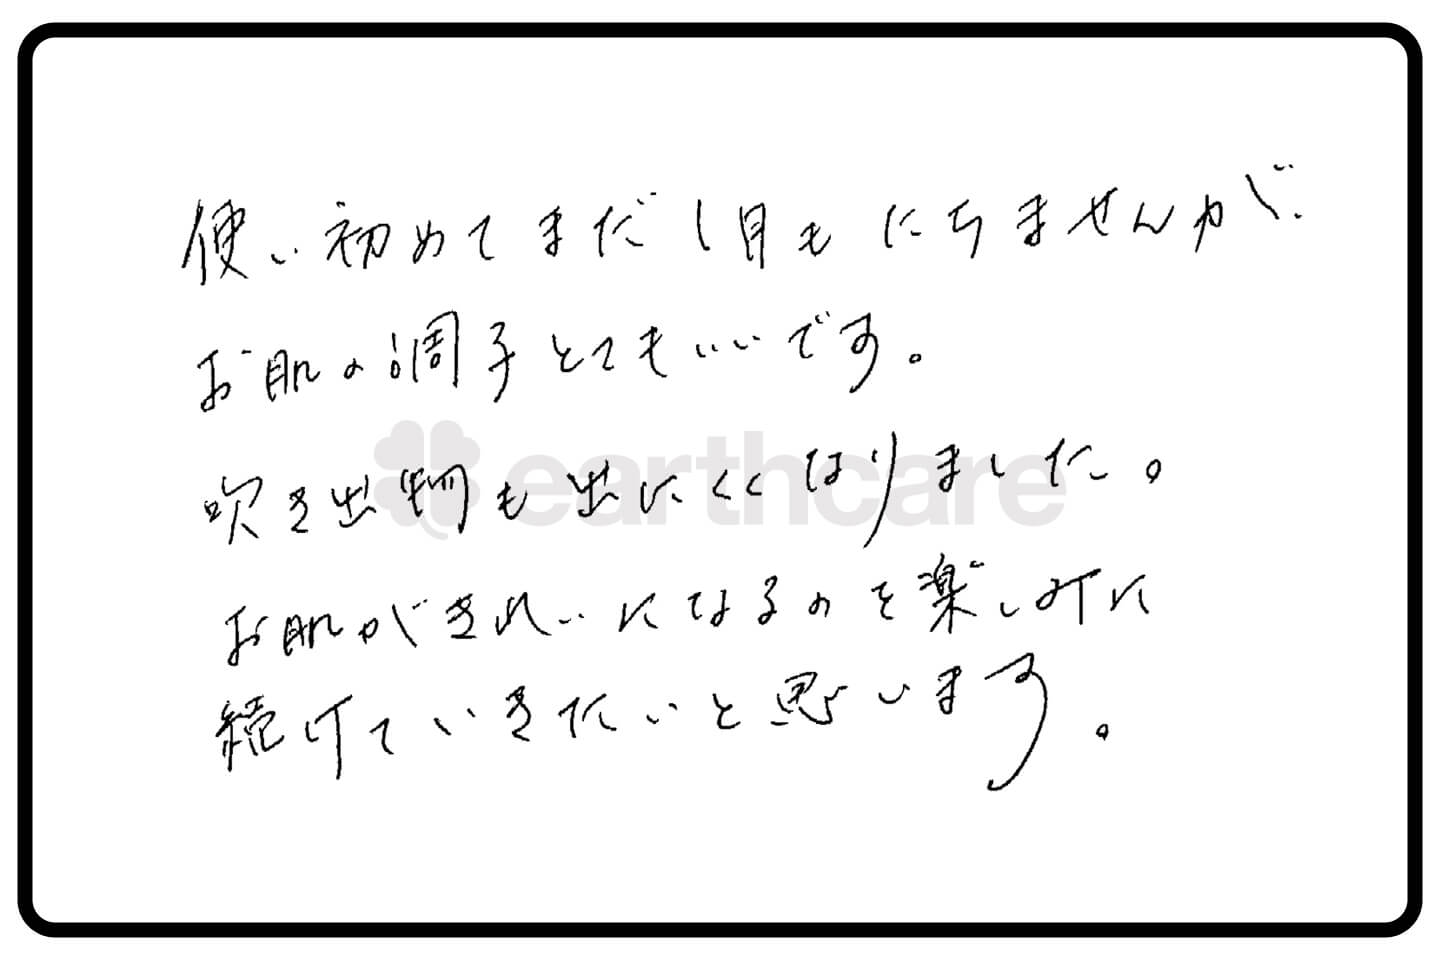 使い初めてまだ1月もたちませんが、
お肌の調子とてもいいです。
earthcare
吹き出物も出にくくなりました。
お肌がきれいになるのを楽しみに
続けていきたいと思います。